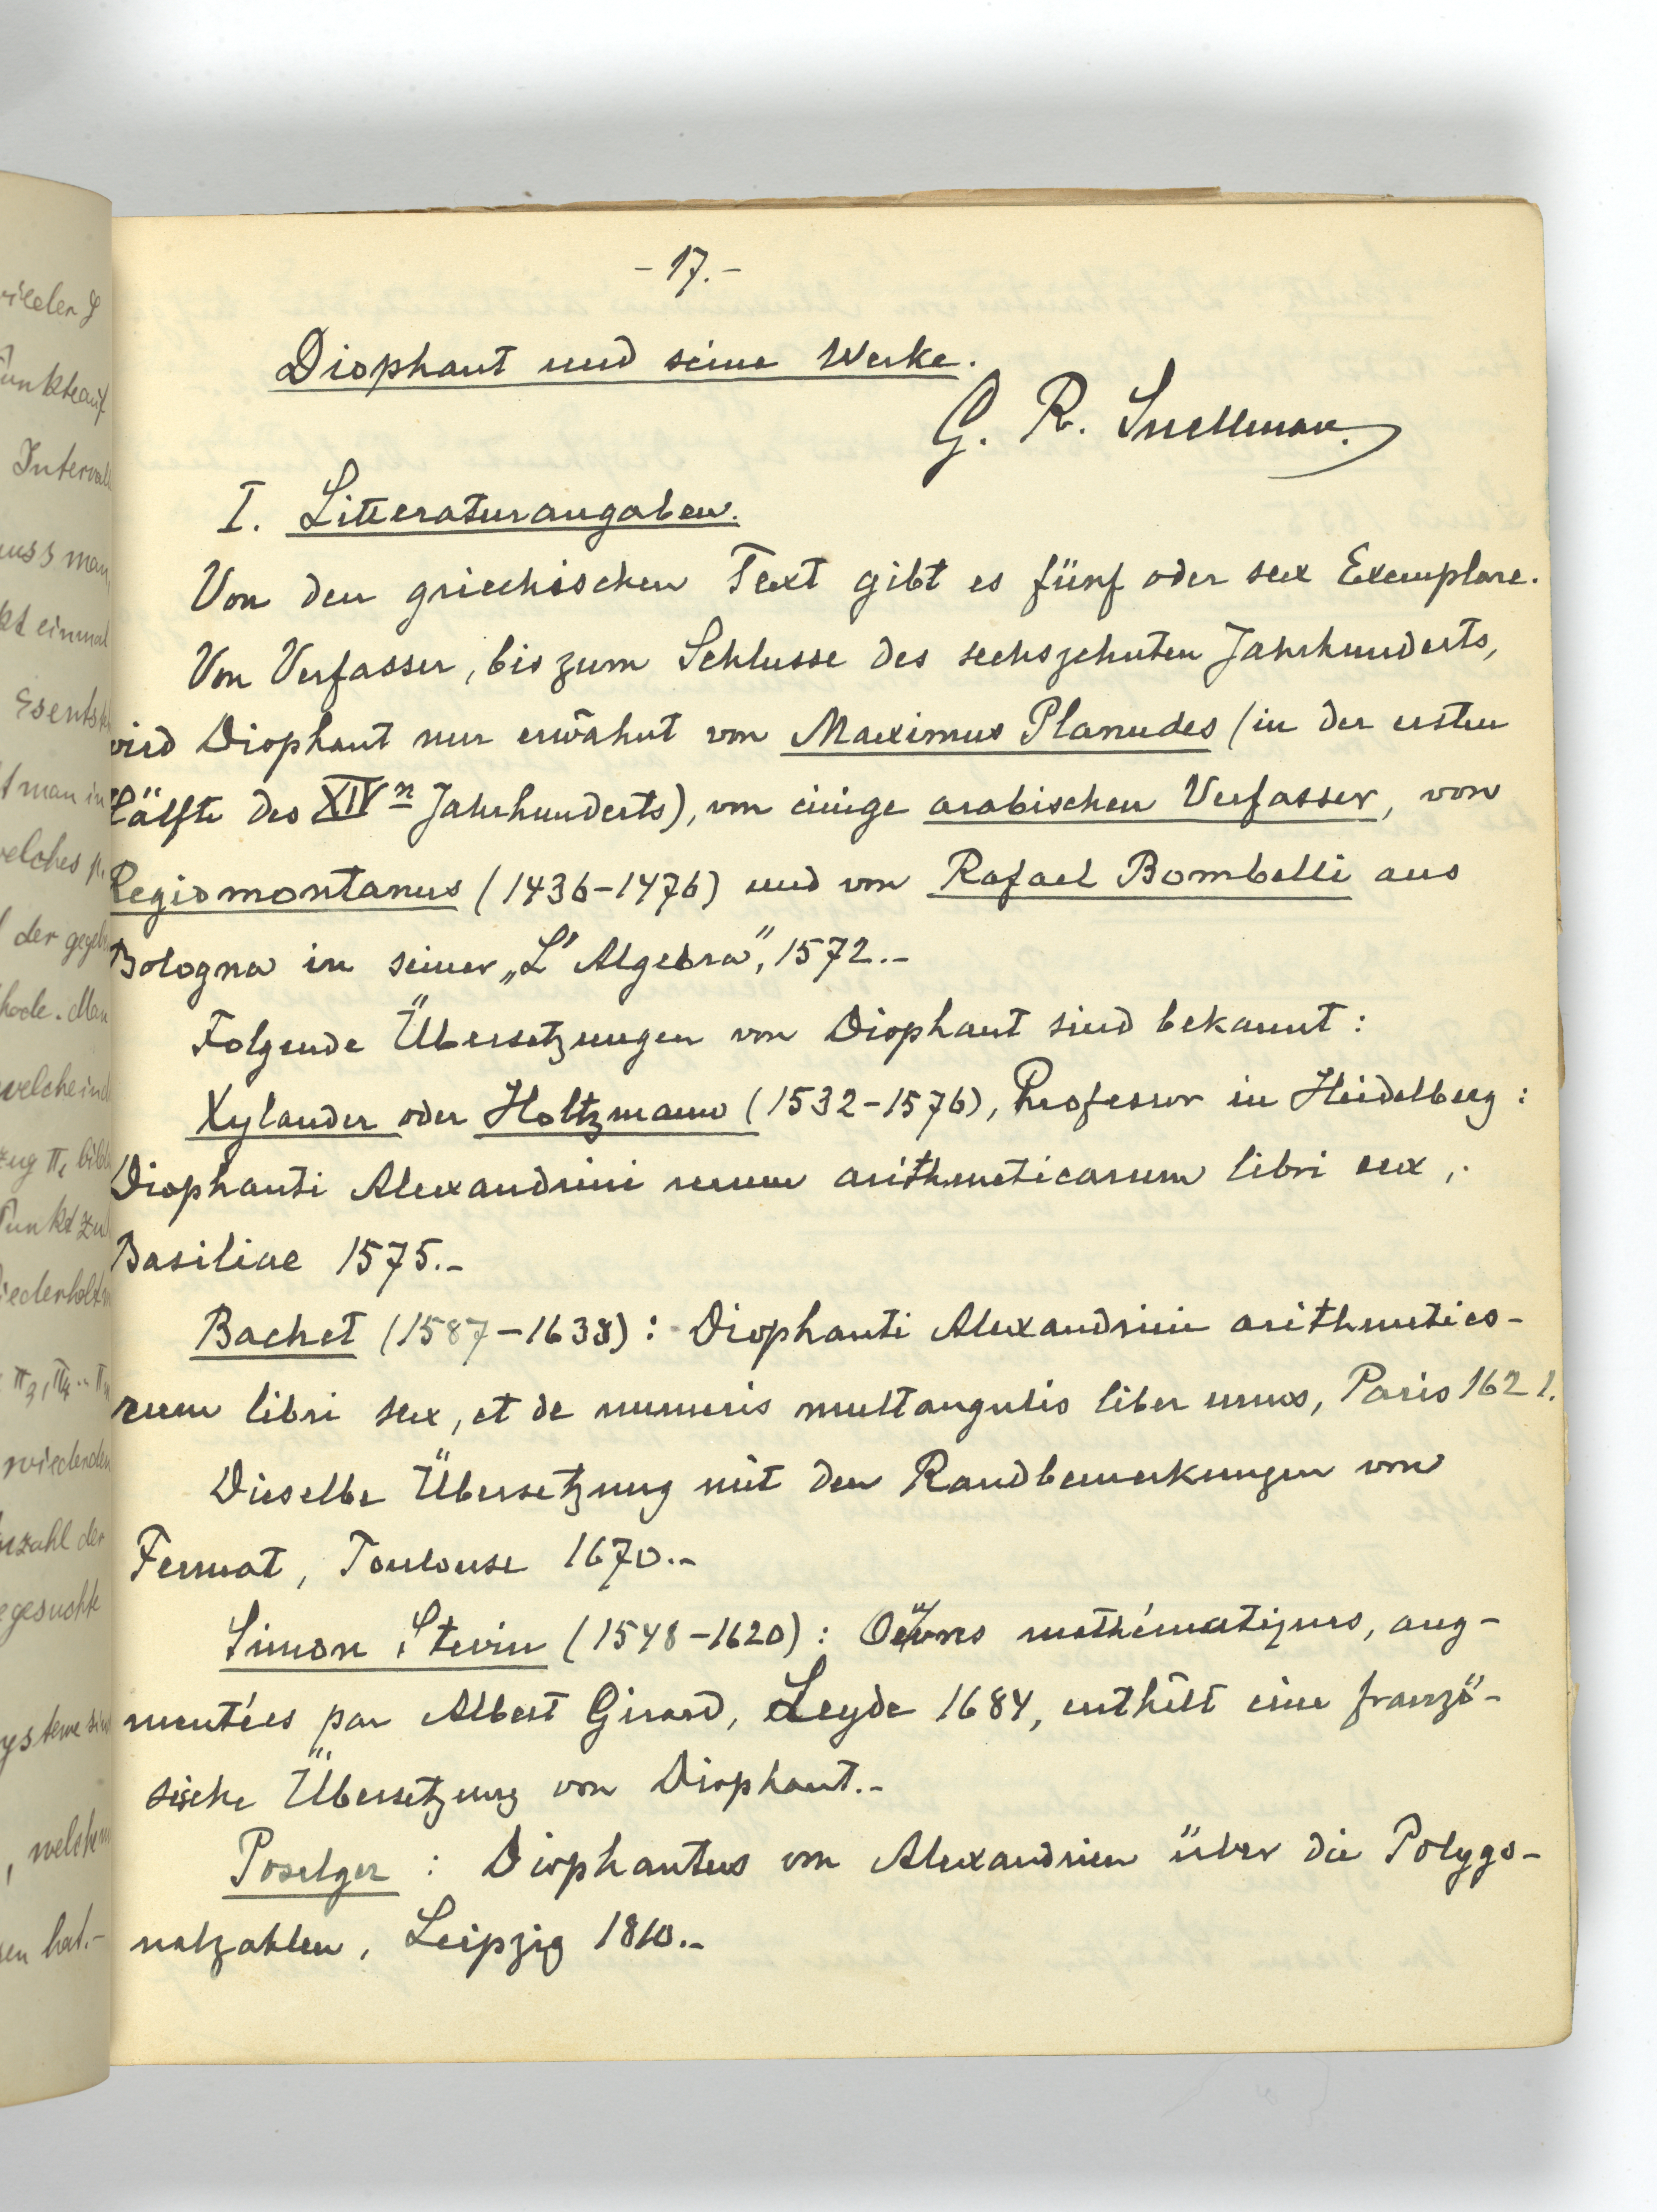 - 17. -
Diophant und seine Werke.
G. R. Snellman.
I. Litteraturangaben.
Von den griechischen Text gibt es fünf oder sex Exemplare.
Von Verfasser, bis zum Schlusse des sechszehnten Jahrhunderts,
wird Diophant nur erwähnt von Maximus Planudes (in der ersten
Hälfte des XIVn Jahrhunderts), von einige arabischen Verfasser, von
Regiomontanus (1436-1476) und von Rafael Bombelli aus
Bologna in seiner „L'Algebra", 1572.-
Folgende Übersetzungen von Diophant sind bekannt:
Xylander oder Holtzmann (1532-1576), Professor in Heidelberg:
Diophanti Alexandrini rerum arithmeticarum libri sex,
Basiliae 1575.-
Bachet (1587-1638): Diophanti Alexandrini arithmetico-
rum libri sex, et de numeris multangulis liber unus, Paris 1621.
Dieselbe Übersetzung mit den Randbemerkungen von
Fermat, Toulouse 1670.-
Simon Stevin (1548-1620): Oeuvres mathématiques, aug-
mentées par Albert Girard, Leyde 1684, enthält eine franzö-
sische Übersetzung von Diophant.-
Poselger: Diophantus von Alexandrien über die Polygo-
nalzahlen, Leipzig 1810.-